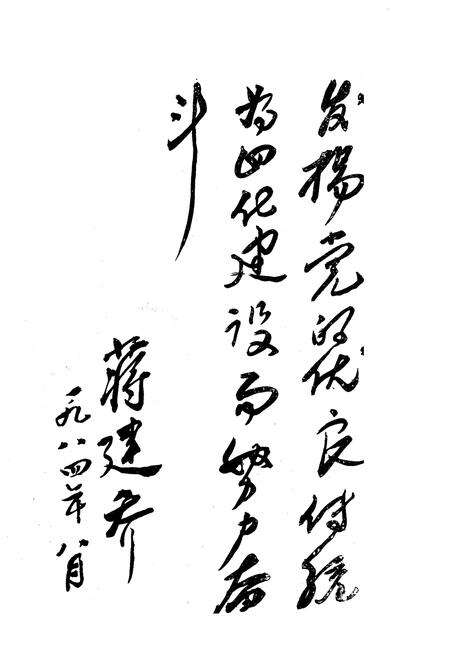 发揚党的优良传统
为四化建设而努力奋
斗
蒋建
一九八四年八月